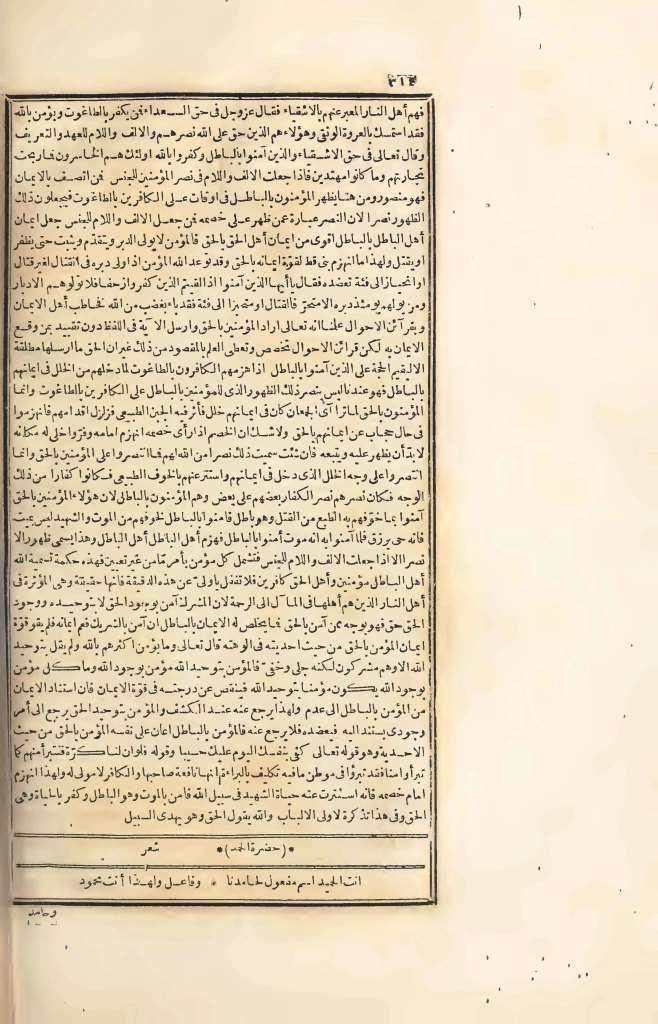 ٣١٤
فهم أهل النار المعبر عنهم بالاشقياء فقال عز وجل فى حق السعداء فمن يكفر بالطاغوت ويؤمن بالله
فقد استمسك بالعروة الوثقى وهؤلاء هم الذين حق على الله نصرهم والالف واللام للعهد والتعريف
وقال تعالى فى حق الاشقياء والذين آمنوا بالباطل وكفروا بالله اولئك هم الخاسرون فما ربحت
تجارتهم وما كانوا مهتدين فاذا جعلت الالف واللام فى نصر المؤمنين للجنس فمن اتصف بالايمان
فهو منصور ومن هنا يظهر المؤمنون بالباطل فى اوقات على الكافرين بالطاغوت فيجعلون ذلك
الظهور نصرا لان النصر عبارة عمن ظهر على خصمه فمن جعل الالف واللام للجنس جعل ايمان
أهل الباطل بالباطل اقوى من ايمان أهل الحق بالحق فالمؤمن لا يولى الدبر ويتقدم ويثبت حتى يظفر
او يقتل ولهذا ما انهزم نبى قط لقوة ايمانه بالحق وقد توعد الله المؤمن اذا ولى دبره فى القتال لغير قتال
او انحياز الى فئة تعضده فقال يا أيها الذين آمنوا اذا لقيتم الذين كفروا زحفا فلا تولوهم الادبار
ومن يولهم يومئذ دبره الا متحرفا لقتال او متحيزا الى فئة فقد باء بغضب من الله فخاطب أهل الايمان
وبقرآئن الاحوال علمنا انه تعالى اراد المؤمنين بالحق وارسل الآية فى اللفظ دون تقييد بمن وقع
الايمان به لكن قرائن الاحوال تخصص وتعطى العلم بالمقصود من ذلك غير ان الحق ما ارسلها مطلقة
الا ليقيم الحجة على الذين آمنوا بالباطل اذا هزمهم الكافرون بالطاغوت لما دخلهم من الخلل فى ايمانهم
بالباطل فهو عندنا ليس بنصر ذلك الظهور الذى للمؤمنين بالباطل على الكافرين بالطاغوت وانما
المؤمنون بالحق لما تراآى الجمعان كان فى ايمانهم خلل فأثر فيه الجبن الطبيعى فزلزل اقدامهم فانهزموا
فى حال حجاب عن ايمانهم بالحق ولا شك ان الخصم اذا رأى خصمه انهزم امامه وفر واخلى له مكانه
لا بد أن يظهر عليه ويتبعه فان شئت سميت ذلك نصرا من الله لهم فما انتصروا على المؤمنين بالحق وانما
انتصروا على وجه الخلل الذى دخل فى ايمانهم واستتر عنهم بالخوف الطبيعى فكانوا كفارا من ذلك
الوجه فكان نصرهم نصر الكفار بعضهم على بعض وهم المؤمنون بالباطل لان هؤلاء المؤمنين بالحق
آمنوا بما خوفهم به الطبع من القتل وهو باطل فآمنوا بالباطل لخوفهم من الموت والشهيد ليس بميت
فانه حى يرزق فلما آمنوا به انه موت آمنوا بالباطل فهزم أهل الباطل أهل الباطل وهذا يسمى ظهورا لا
نصرا الا اذا جعلت الالف واللام للجنس فتشمل كل مؤمن بأمر ما من غير تعيين فهذه حكمة تسمية الله
أهل الباطل مؤمنين وأهل الحق كافرين فلا تغفل يا ولى عن هذه الدقيقة فانها حقيقة وهى المؤثرة فى
أهل النار الذين هم أهلها فى المآل الى الرحمة لان المشرك آمن بوجود الحق لا بتوحيده ووجود
الحق حق فهو بوجه ممن آمن بالحق فما يخلص له الايمان بالباطل ان آمن بالشريك فعم ايمانه فلم يقو قوة
ايمان المؤمن بالحق من حيث احديته فى الوهته قال تعالى وما يؤمن اكثرهم بالله ولم يقل بتوحيد
الله الا وهم مشركون لكنه جلى وخفى فالمؤمن بتوحيد الله مؤمن بوجود الله وما كل مؤمن
بوجود الله يكون مؤمنا بتوحيد الله فينقص عن درجته فى قوة الايمان فان استناد الايمان
من المؤمن بالباطل الى عدم ولهذا يرجع عنه عند الكشف والمؤمن بتوحيد الحق يرجع الى أمر
وجودى يستند اليه فيعضده فلا يرجع عنه فالمؤمن بالباطل اعان على نفسه المؤمن بالحق من حيث
الاحدية وهو قوله تعالى كفى بنفسك اليوم عليك حسيبا وقوله فلو ان لنا كرة فنتبرأ منهم كما
تبرأوا منا فقد تبرؤا فى موطن ما فيه تكليف بالبراءة انها نافعة صاحبها والكافر لا مولى له ولهذا انهزم
امام خصمه فانه استترت عنه حياة الشهيد فى سبيل الله فآمن بالموت وهو الباطل وكفر بالحياة وهى
الحق وفى هذا تذكرة لاولى الالباب والله يقول الحق وهو يهدى السبيل
*(حضرة الحمد)* شعر
انت الحميد اسم مفعول لحامدنا * وفاعل ولهذا أنت محمود
وحامد